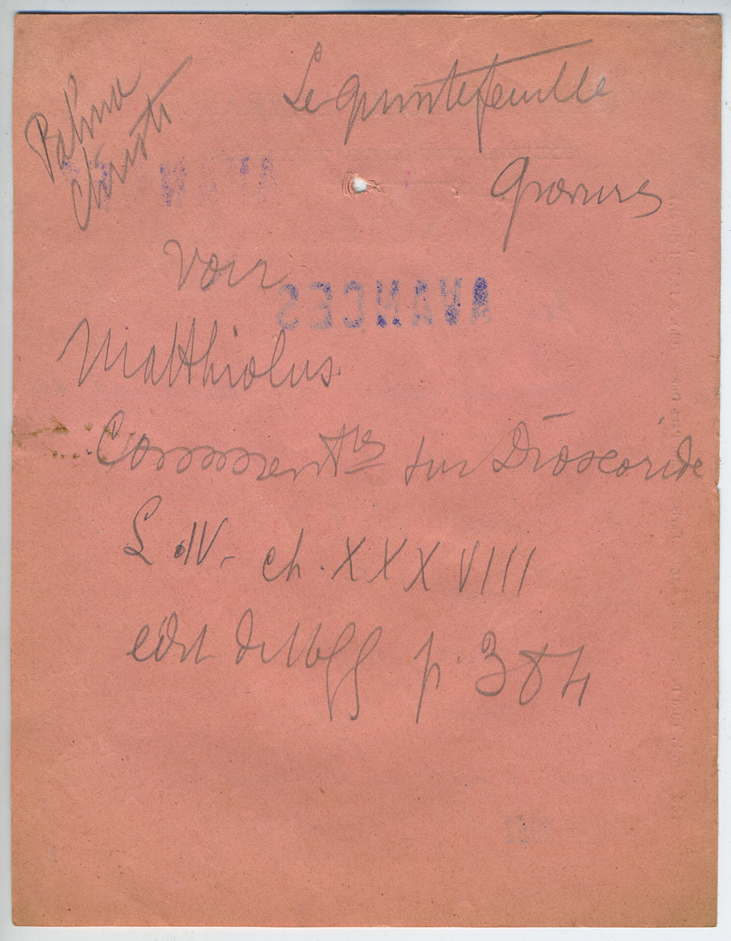 Palma
Christi
Le quintefeuille
Gravures
voir
AVANCES
Matthiolus
Comment^res sur Dioscoride
L. IV. ch. XXXVIII
edit de p. 384